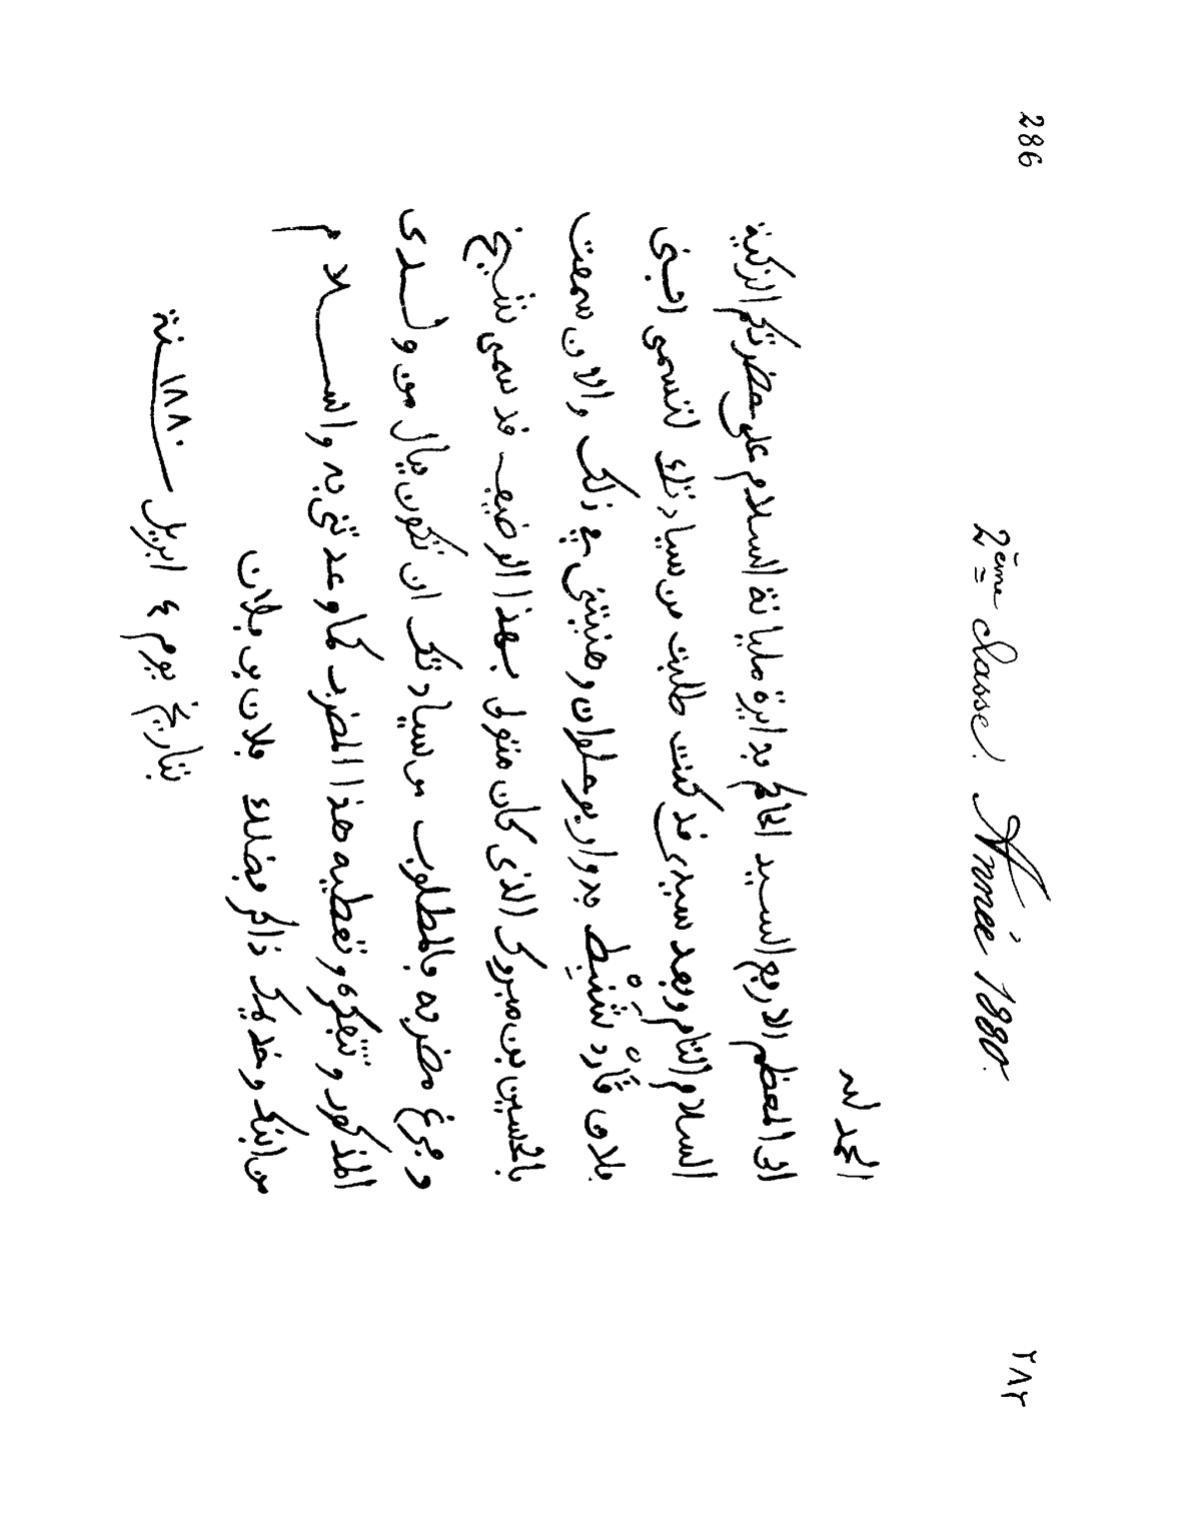 286
٢٨٢
2ème classe. Année 1880.
الحمد لله
الى المعظم الارفع السيد الحاكم بدايرة مليانة السلام على حضرتكم الزكية
السلام التام وبعد سيدى قد كنت طلبت من سيادتك لتسمى
فلان قَارْد شَنْبِيط بدوار بوحلوان وضنيتنى في ذلك والان سمعت
بالحسين بن مبروك الذى كان متولى بهذا الوضيف قد سمى شيخ
وفرغ مضربه فالمطلوب من سيادتك ان تكون من ولدى
المذكور وتتفكره وتعطيه هذا المضرب كما وعدتنى به والسلام
من ابنك وخديمك ذاكر فضلك فلان بن فلان
بتاريخ يوم ٤ ابريل سنة ١٨٨٠